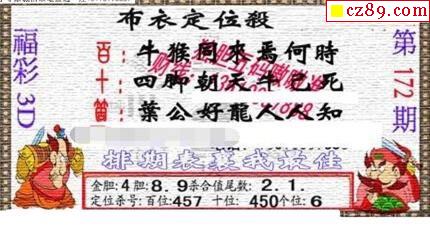 cz89.com
布衣定位殺
福彩3D
第172期
百 牛猴同來焉何時
十 四脚朝天牛已死
個 葉公好龍人人知
排期衣裏我最佳
金胆:4胆:8.9杀合值尾数:2.1.
定位杀号:百位:457 十位:450个位:6